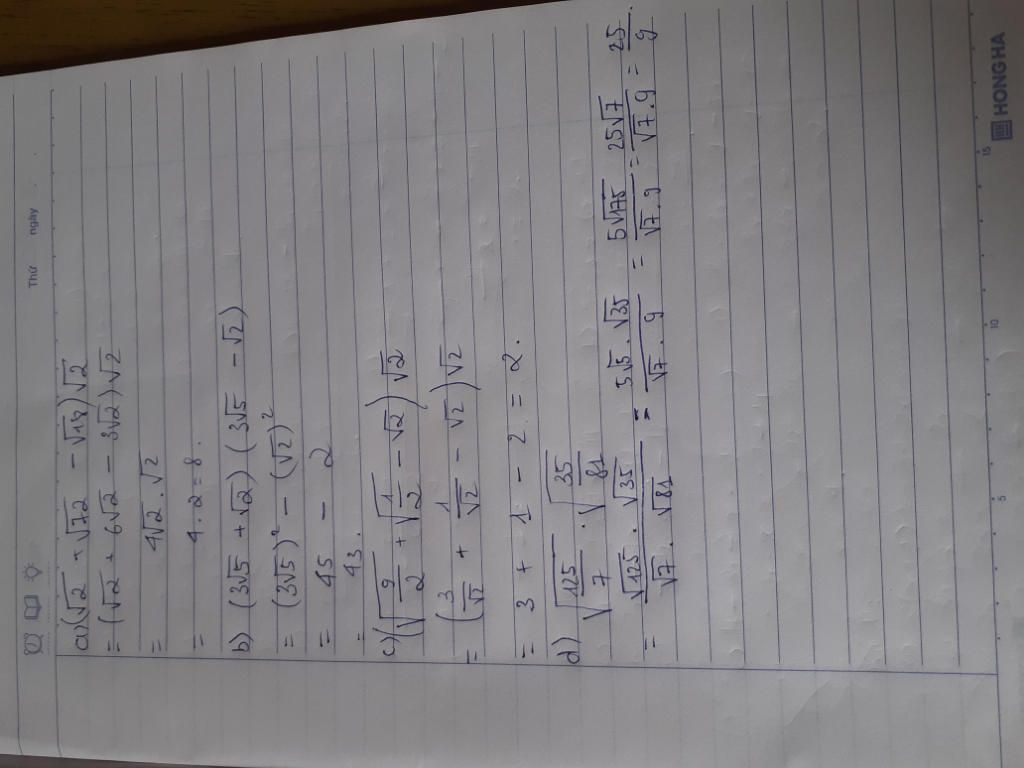 Thứ ngày
a) (√2 + √72 - √18)√2
= (√2 + 6√2 - 3√2)√2
= 4√2.√2
= 4.2 = 8.
b) (3√5 + √2)(3√5 - √2)
= (3√5)² - (√2)²
= 45 - 2
= 43.
c) (√(9/2) + √(1/2) - √2)√2
= (3/√2 + 1/√2 - √2)√2
= 3 + 1 - 2 = 2.
d) √(125/7) . √(35/81)
= (√125 . √35)/(√7 . √81) = (5√5 . √35)/(√7 . 9) = (5√175)/(√7 . 9) = (25√7)/(√7 . 9) = 25/9.
5 10 15
HONG HA